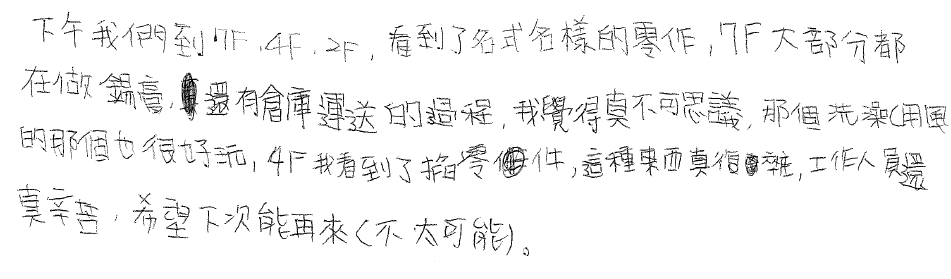 下午我們到7F.4F.2F,看到了名式名樣的零作,7F大部分都
在做錫膏,還有倉庫運送的過程,我覺得真不可思議,那個洗澡(用風
的那個也很好玩,4F我看到了掐零件,這種東西真複雜,工作人員還
真辛苦,希望下次能再來(不太可能)。